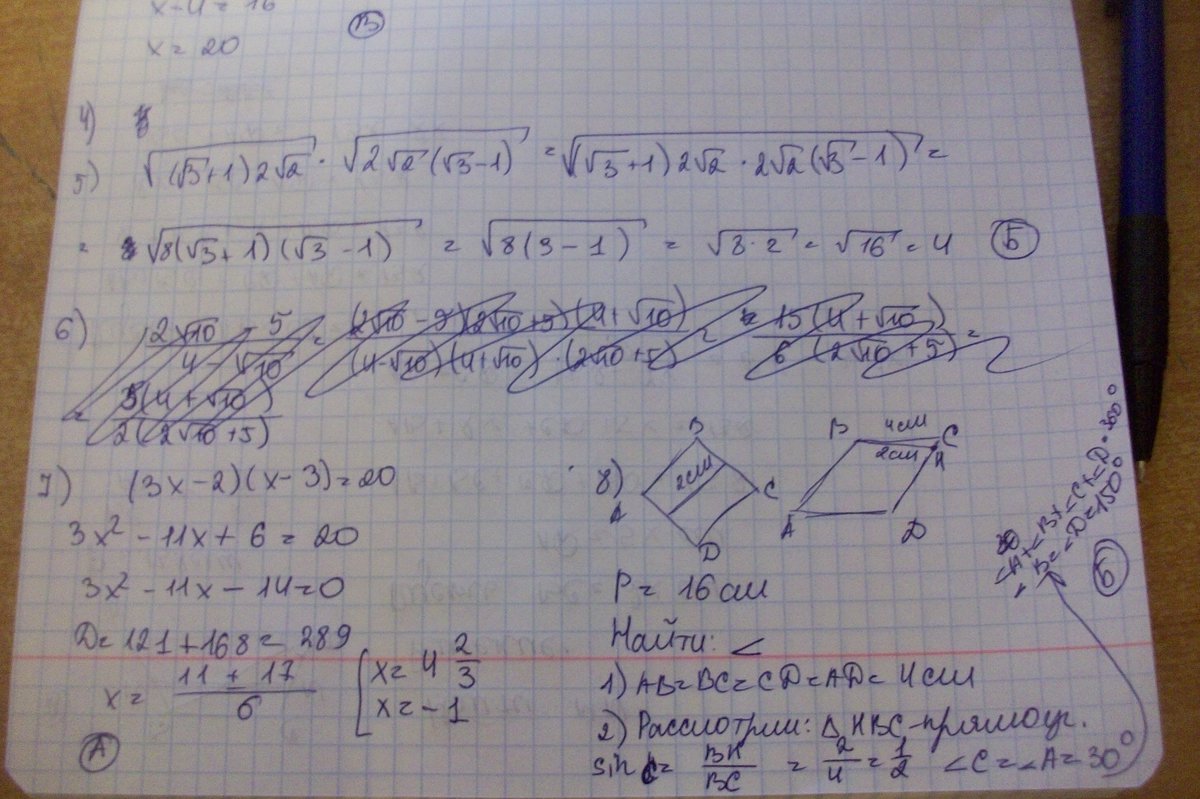 x-4=16
x= 20
В
4)
5) √((√3+1)2√2) · √(2√2(√3-1)) = √((√3+1)2√2 · 2√2(√3-1)) =
= √(8(√3+1)(√3-1)) = √(8(3-1)) = √(8·2) = √16 = 4 Б
6) (2√10 - 5)/(4 - √10) = ((2√10-5)(2√10+5)(4+√10))/((4-√10)(4+√10)·(2√10+5)) = (15(4+√10))/(6(2√10+5)) =
= (5(4+√10))/(2(2√10+5))
7) (3x-2)(x-3)=20
3x² - 11x + 6 = 20
3x² - 11x - 14=0
D= 121+168= 289
x= (11 ± 17)/6 [x= 4 2/3
x= -1
А
8) B
2см
A C
D
B 4см C
2см H
A D
P= 16см
Найти: ∠
1) AB=BC=CD=AD= 4см
2) Рассмотрим: Δ HBC-прямоуг.
sin C= BH/BC = 2/4 = 1/2 ∠C=∠A=30°
∠A+∠B+∠C+∠D=360°
∠B=∠D=150°
Б